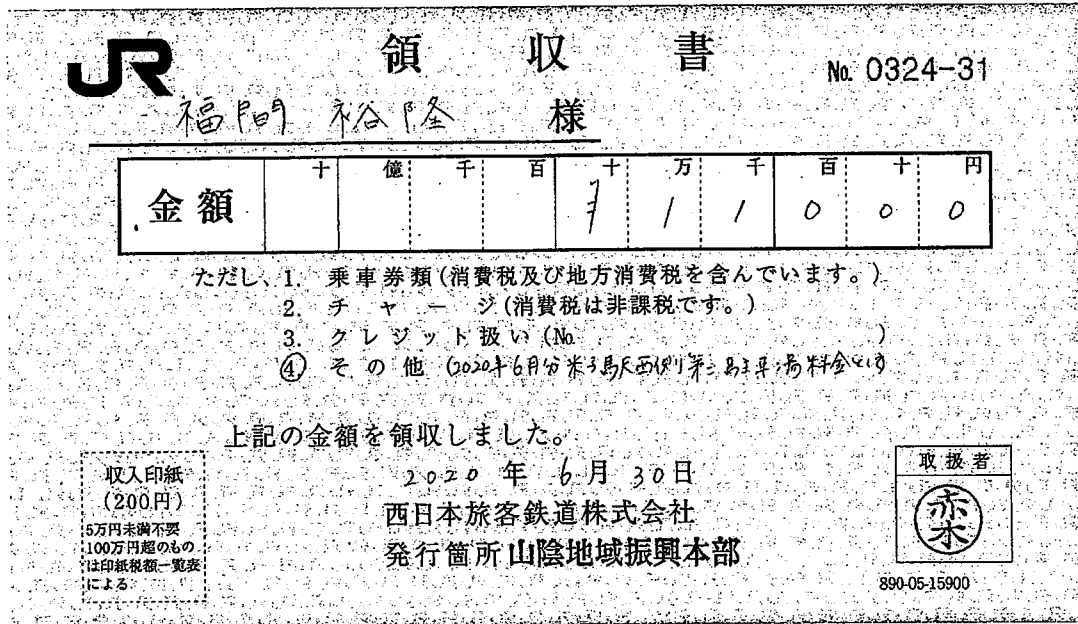 JR
領収書
No. 0324-31
福間 裕隆 様
十 億 千 百 十 万 千 百 十 円
金額 ¥ 1 1 0 0 0
ただし、1. 乗車券類(消費税及び地方消費税を含んでいます。)
2. チャージ(消費税は非課税です。)
3. クレジット扱い(No. )
④ その他 (2020年6月分米子駅西側第二駐車場料金として)
上記の金額を領収しました。
2020 年 6月 30日
西日本旅客鉄道株式会社
発行箇所 山陰地域振興本部
収入印紙
(200円)
5万円未満不要
100万円超のもの
は印紙税額一覧表
による
取扱者
赤木
890-05-15900